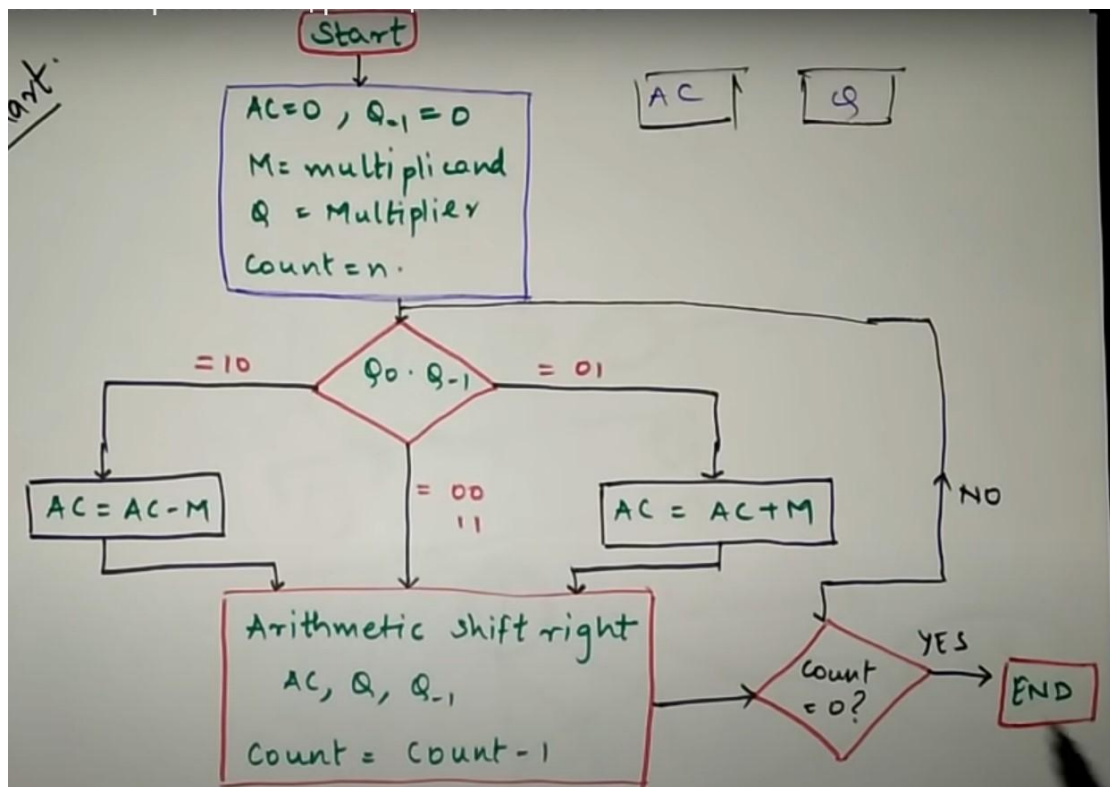 art.
Start
AC=0 , Q-1 = 0
M= multiplicand
Q = Multiplier
Count = n.
AC
Q
Q0 . Q-1
= 10
= 01
= 00
11
AC = AC - M
AC = AC + M
NO
Arithmetic shift right
AC, Q, Q-1
Count = Count - 1
Count
= 0?
YES
END